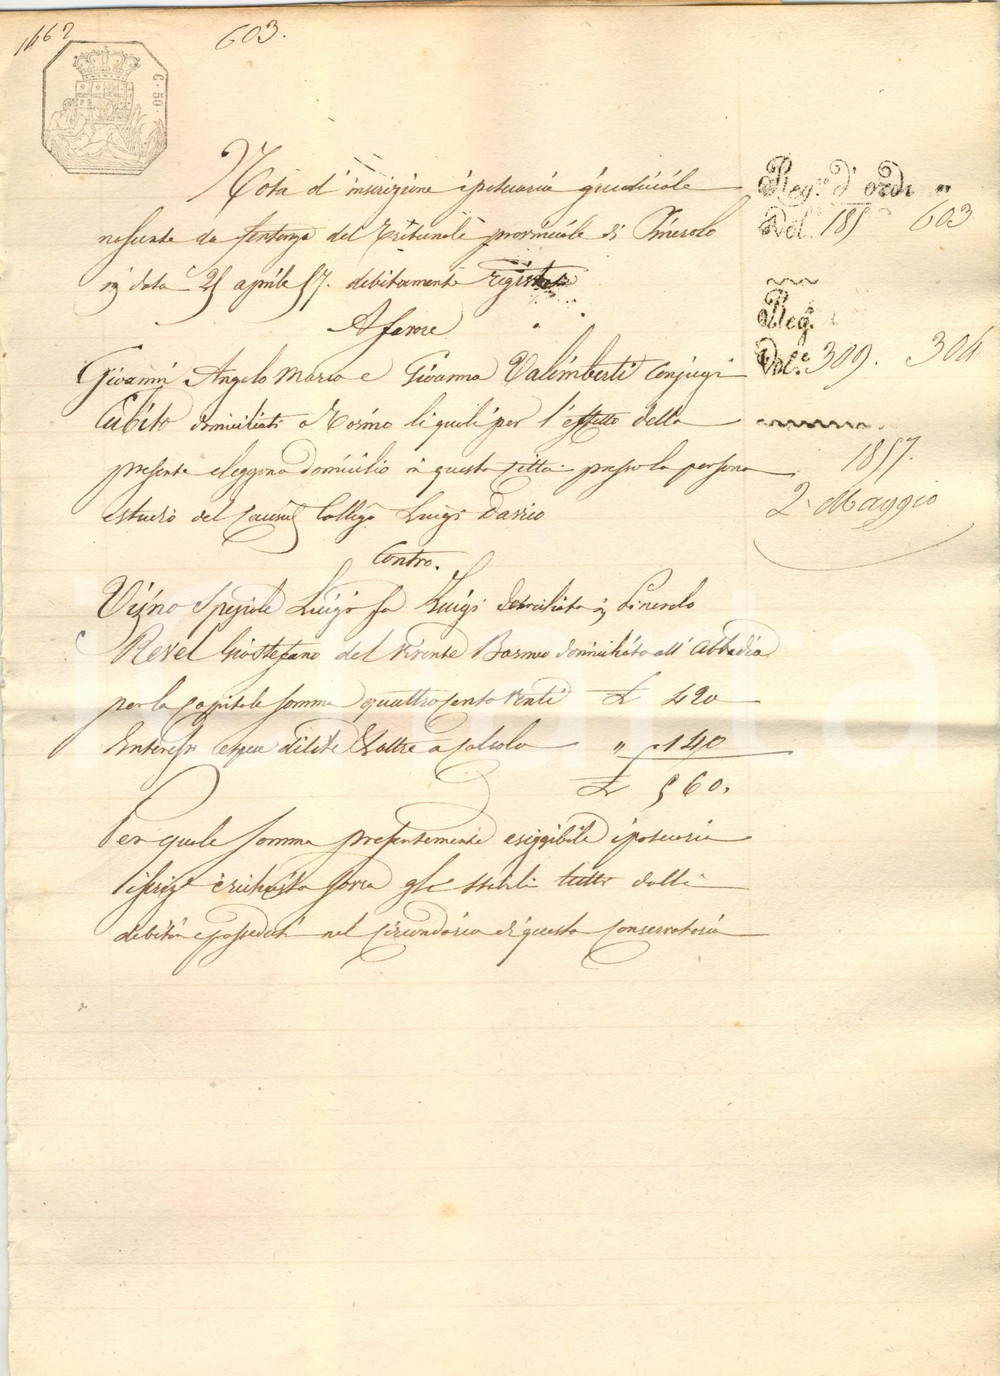 1462 603.
C. 50.
Nota d'inscrizione ipotecaria giudiciale
nascente da sentenza del Tribunale provinciale di Pinerolo
in data 25 aprile 57. debitamente
A favore
Giovanni Angelo Marco e Giovanna Valimberti Conjugi
Cubito domiciliati a Rosmo li quali per l'effetto della
presente eleggono domicilio in questa città presso la persona
e studio del Caus Colleg Luigi Darrio
Contro.
Vigno Speziale Luigi fu Luigi domiciliato in Pinerolo
Revel Gio Stefano del vivente domiciliato all' Abbadia
per la capitale somma quattrocento venti £ 420
Interessi spese e oltre a calcolo " 140
£ 560.
Per quale somma presentemente esiggibile ipotecaria
è richiesta sovra gli stabili tutti dalli
debitori posseduti nel circondario di questa Conservatoria
Reg.º d'ord.
Vol. 185 603
Reg.
Vol.e 309. 304
1857.
2 Maggio